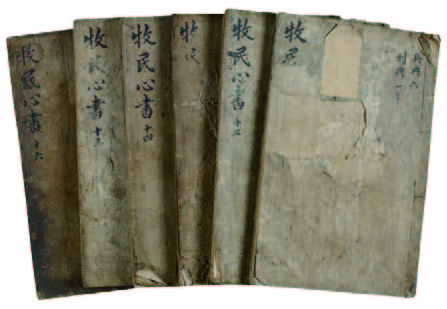 牧民心書 十六
牧民心書
牧民心書 十四
牧民
牧民心書 十二
牧民
兵典六
刑典一